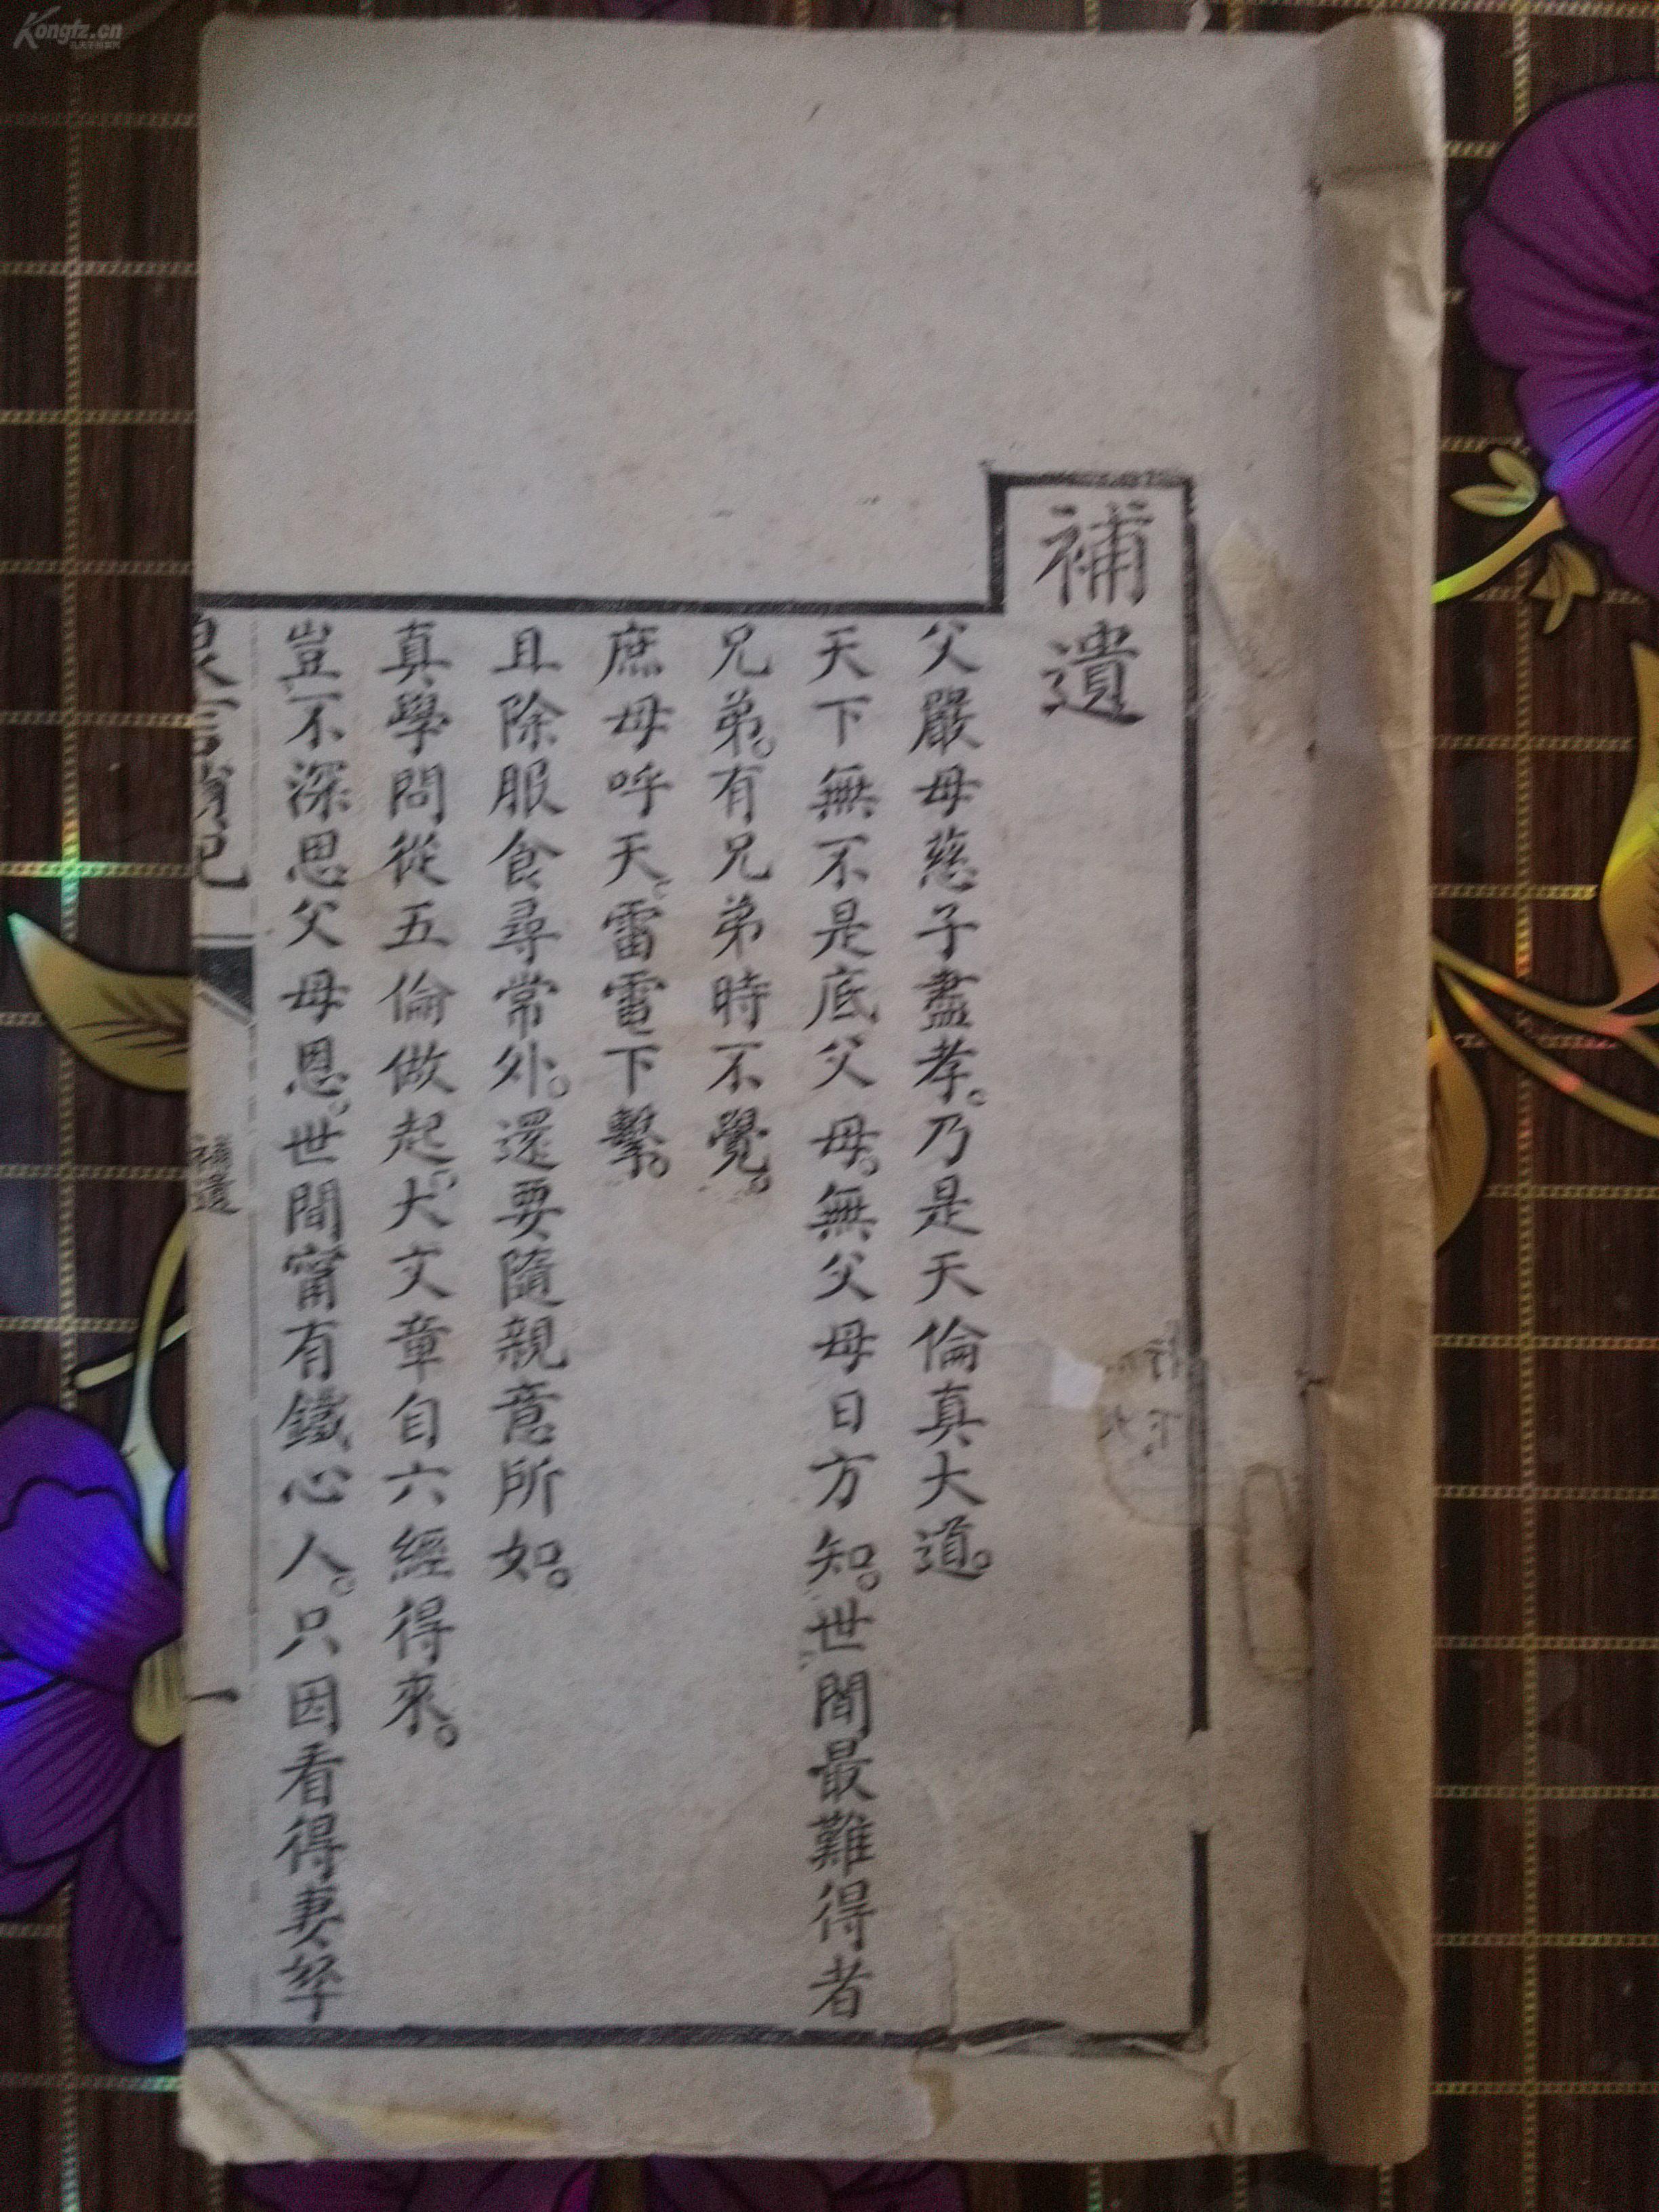 補遺
父嚴母慈子盡孝。乃是天倫真大道。
天下無不是底父母。無父母日方知。世間最難得者
兄弟。有兄弟時不覺。
庶母呼天。雷電下擊。
且除服食尋常外。還要隨親意所如。
真學問從五倫做起。大文章自六經得來。
豈不深思父母恩。世間甯有鐵心人。只因看得妻孥
補遺
一
Kongfz.cn